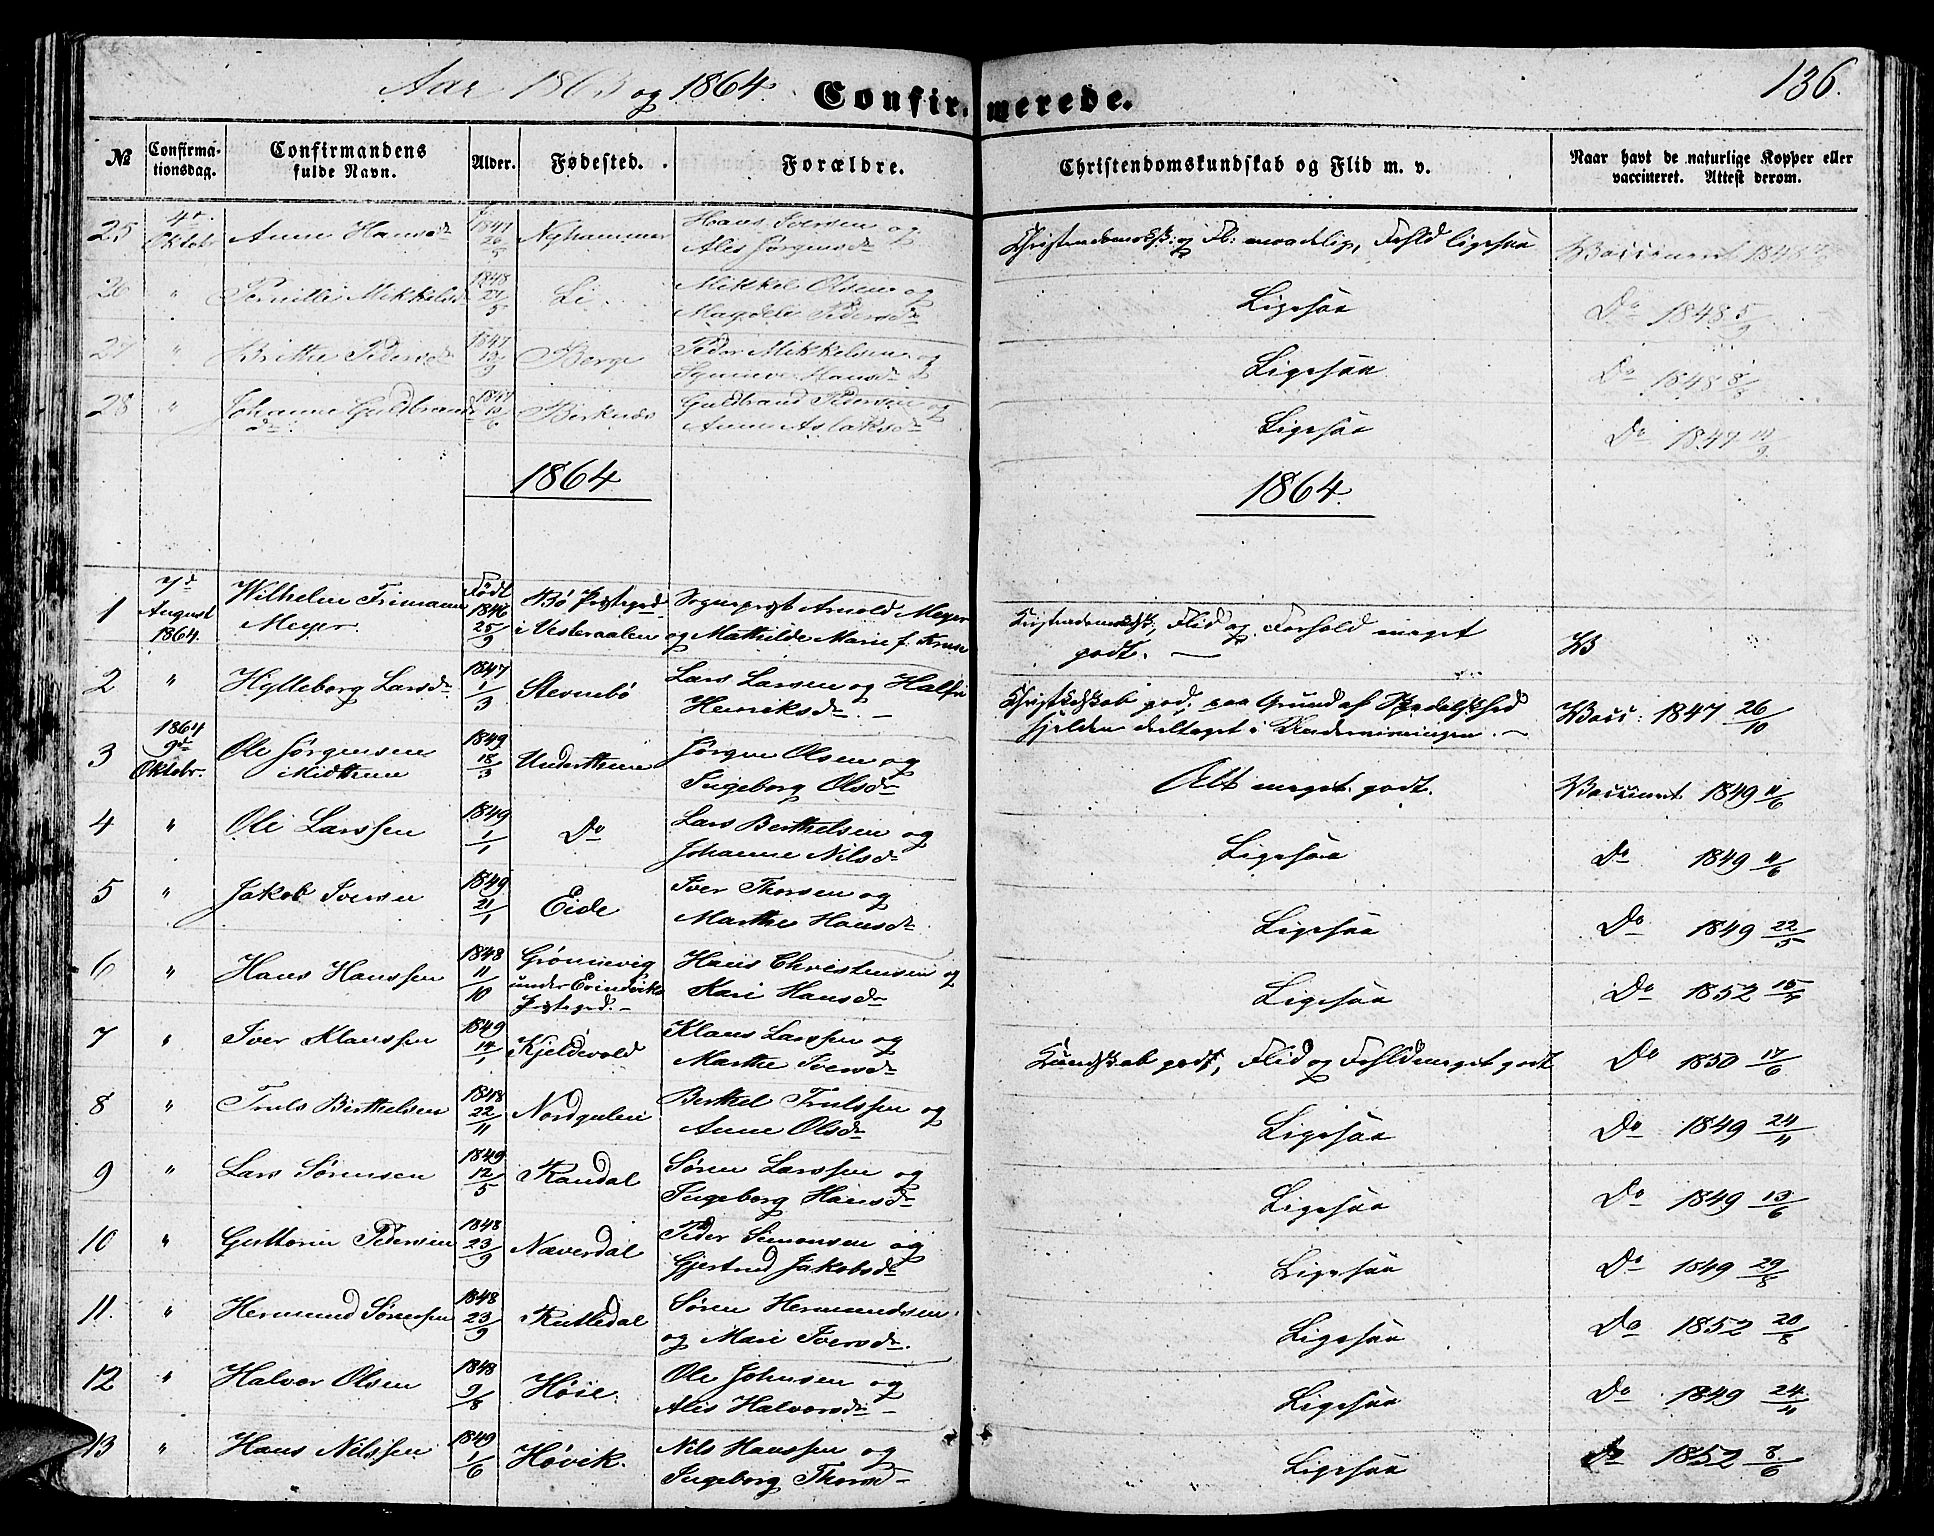 Aar 1863 og 1864.
Confirmerede.
136.
№ Confirmationsdag. Confirmandens fulde Navn. Alder. Fødested. Forældre. Christendomskundskab og Flid m. v. Naar havt de naturlige Kopper eller vaccineret. Attest derom.
25 4de Oktobr Anne Hansdr 1847 26/5 Nyhammer Hans Iversen og Alis Jørgensdr Christendomsk: og Fl: maadelig, Fohld ligesaa Vaccineret 1848
26 " Pernille Mikkelsdr 1848 21/5 Li Mikkel Olsen og Magdele Pedersdr Ligesaa Do 1848 5/9
27 " Brithe Pedersdr 1847 19/9 Berge Peder Mikkelsen og Hansdr Ligesaa Do 1848
28 " Johanne Guldbrandsdr 1847 10/6 Birknes Guldbrand Pedersen og Anne Aslaksdr Ligesaa Do 1847
1864
1864.
1 7d August 1864. Wilhelm Frimann Meyer. Født 1846 25/9 Bø Præstegjd i Vesteraalen Sogneprest Arnold Meyer og Mathilde Marie f. Kruse Kristendomsdsk, Flid og Forhold meget godt. V
2 " Hylleborg Larsdr 1847 1/3 Stevnebø Lars Larsen og Halfri Henriksdr Christkdskab god, paa Grund af Spedalskhed sjelden deeltaget i Underviisningen. Vacc: 1847 26/10
3 1864 9de Oktobr. Ole Jørgensen Midttun 1849 18/3 Underthun Jørgen Olsen og Ingeborg Olsdr Alt meget godt. Vaccineret 1849 11/6
4 " Ole Larssen 1849 1/1 Do Lars Berthelsen og Johanne Nilsdr Ligesaa Do 1849 11/6
5 " Jakob Iversen 1849 21/1 Eide Iver Thorsen og Marthe Hansdr Ligesaa Do 1849 22/5
6 " Hans Hanssen 1848 11/10 Grønnevig under Evindviks Prstegd. Hans Christensen og Kari Hansdr Ligesaa Do 1852
7 " Iver Klaussen 1849 14/1 Kjeldevold Klaus Larssen og Marthe Iversdr Kundskab godt, Flid og Fohld meget godt Do 1850 17/6
8 " Truls Berthelsen 1848 22/11 Nordgulen Berthel Trulssen og Anne Olsdr Ligesaa Do 1849 24/11
9 " Lars Sørensen 1849 12/5 Randal Søren Larssen og Ingeborg Hansdr Ligesaa Do 1849 13/6
10 " Guttorm Pedersen 1848 23/9 Næverdal Peder Simonsen og Gjertrud Jakobsdr Ligesaa Do 1849 29/8
11. " Hermund Sørenssen 1848 23/9 Rutledal Søren Hermundsen og Mari Iversdr. Ligesaa Do 1852 20/8
12 " Halvor Olsen 1848 9/8 Høie. Ole Johnsen og Alis Halvorsdr Ligesaa Do 1849 24/11
13 " Hans Nilssen 1849 1/6 Høvik. Nils Hanssen og Ingeborg Thorsdr Ligesaa Do 1852 8/6